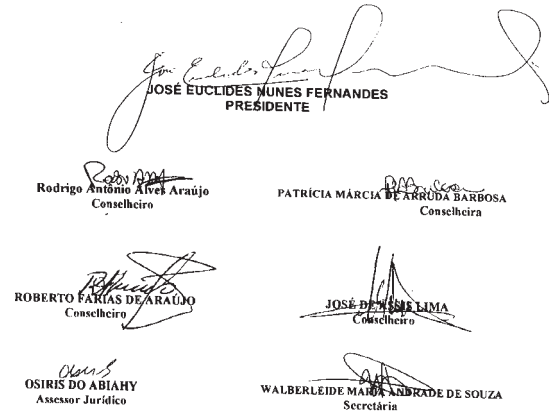 José Euclides Nunes Fernandes
JOSÉ EUCLIDES NUNES FERNANDES
PRESIDENTE
Rodrigo Antônio Alves Araújo
Conselheiro
PATRÍCIA MÁRCIA DE ARRUDA BARBOSA
Conselheira
ROBERTO FARIAS DE ARAÚJO
Conselheiro
JOSÉ DE ASSIS LIMA
Conselheiro
Osiris
OSIRIS DO ABIAHY
Assessor Jurídico
WALBERLEIDE MARIA ANDRADE DE SOUZA
Secretária